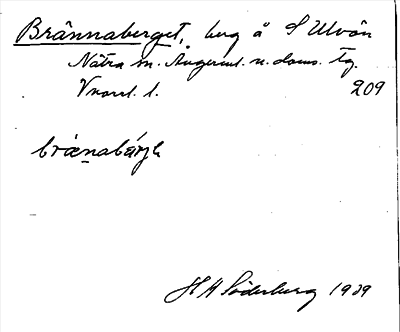 Brännaberget, berg å S Ulvön
Nätra sn. Ångerml. n. doms. tg.
Vnorrl. l. 209
H A Söderberg 1939